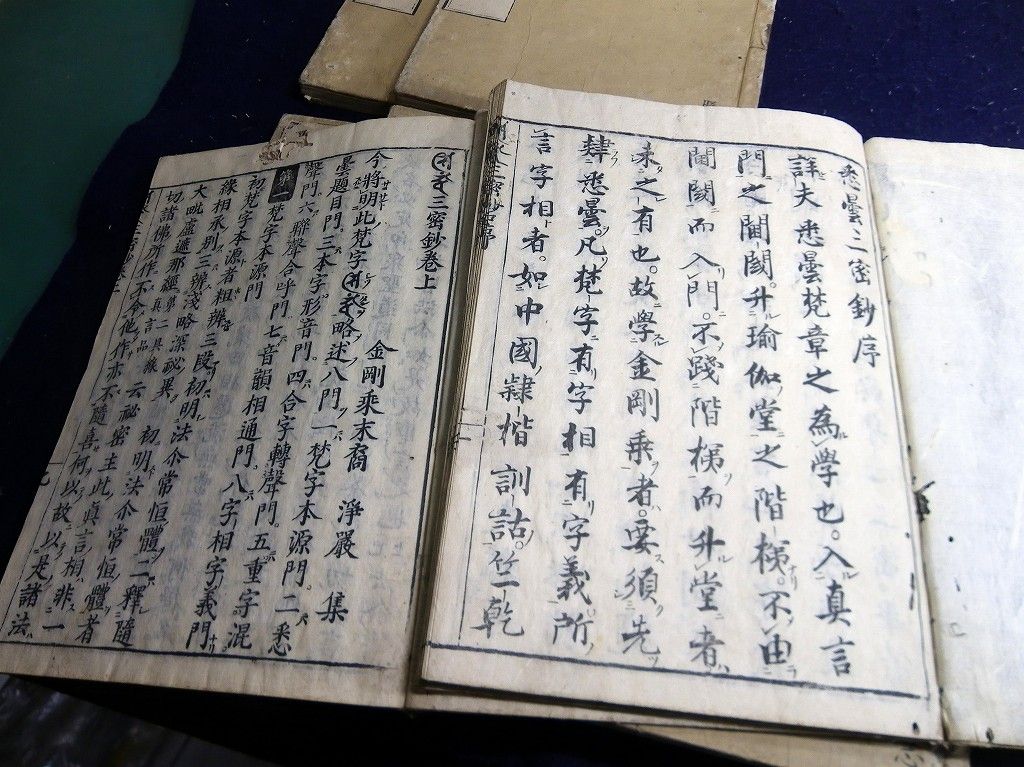 悉曇三密鈔序
詳夫悉曇梵章之為學也。入真言
門之閫閾。升瑜伽堂之階梯。不由
閫閾而入門。不踐階梯而升堂者
未之有也。故學金剛乗者。要須先
肄悉曇。凡梵字有字相有字義所
言字相者。如中國隸楷訓詁竺乾
三密鈔卷上
金剛乘末裔 淨嚴 集
今將明此梵字略述八門一梵字本源門。二悉
曇題目門三本字形音門。四合字轉聲門。五重字混
聲門六聯聲合呼門七音韻相通門。八字相字義門
第一梵字本源門
初梵字本源者粗辨三段初明法尒常恒體二釋隨
緣相承别三辨淺略深祕異初明法尒常恒體者
大毗盧遮那經第二具緣真言品云祕密主此真言相非一
切諸佛所作不令他作亦不隨喜何以故以是諸法